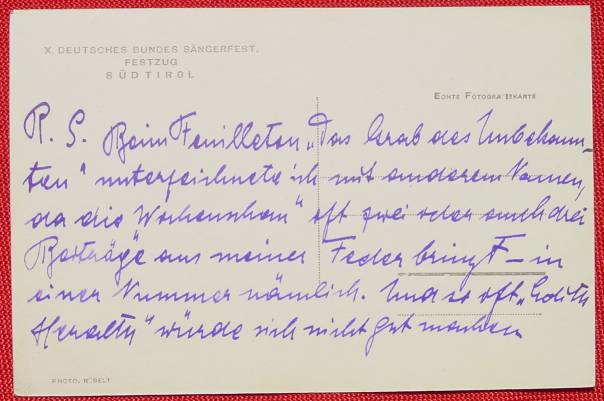 X. DEUTSCHES BUNDES SÄNGERFEST.
FESTZUG
SÜDTIROL
ECHTE FOTOGRAFIEKARTE
P. S. Beim Feuilleton „Das Grab des Unbekann-
ten" unterzeichnete ich mit anderem Namen,
da die „Wochenschau" oft zwei oder auch drei
Beiträge aus meiner Feder bringt – in
einer Nummer nämlich. Und so oft „Edith
" würde sich nicht gut machen
PHOTO, RÜBELT